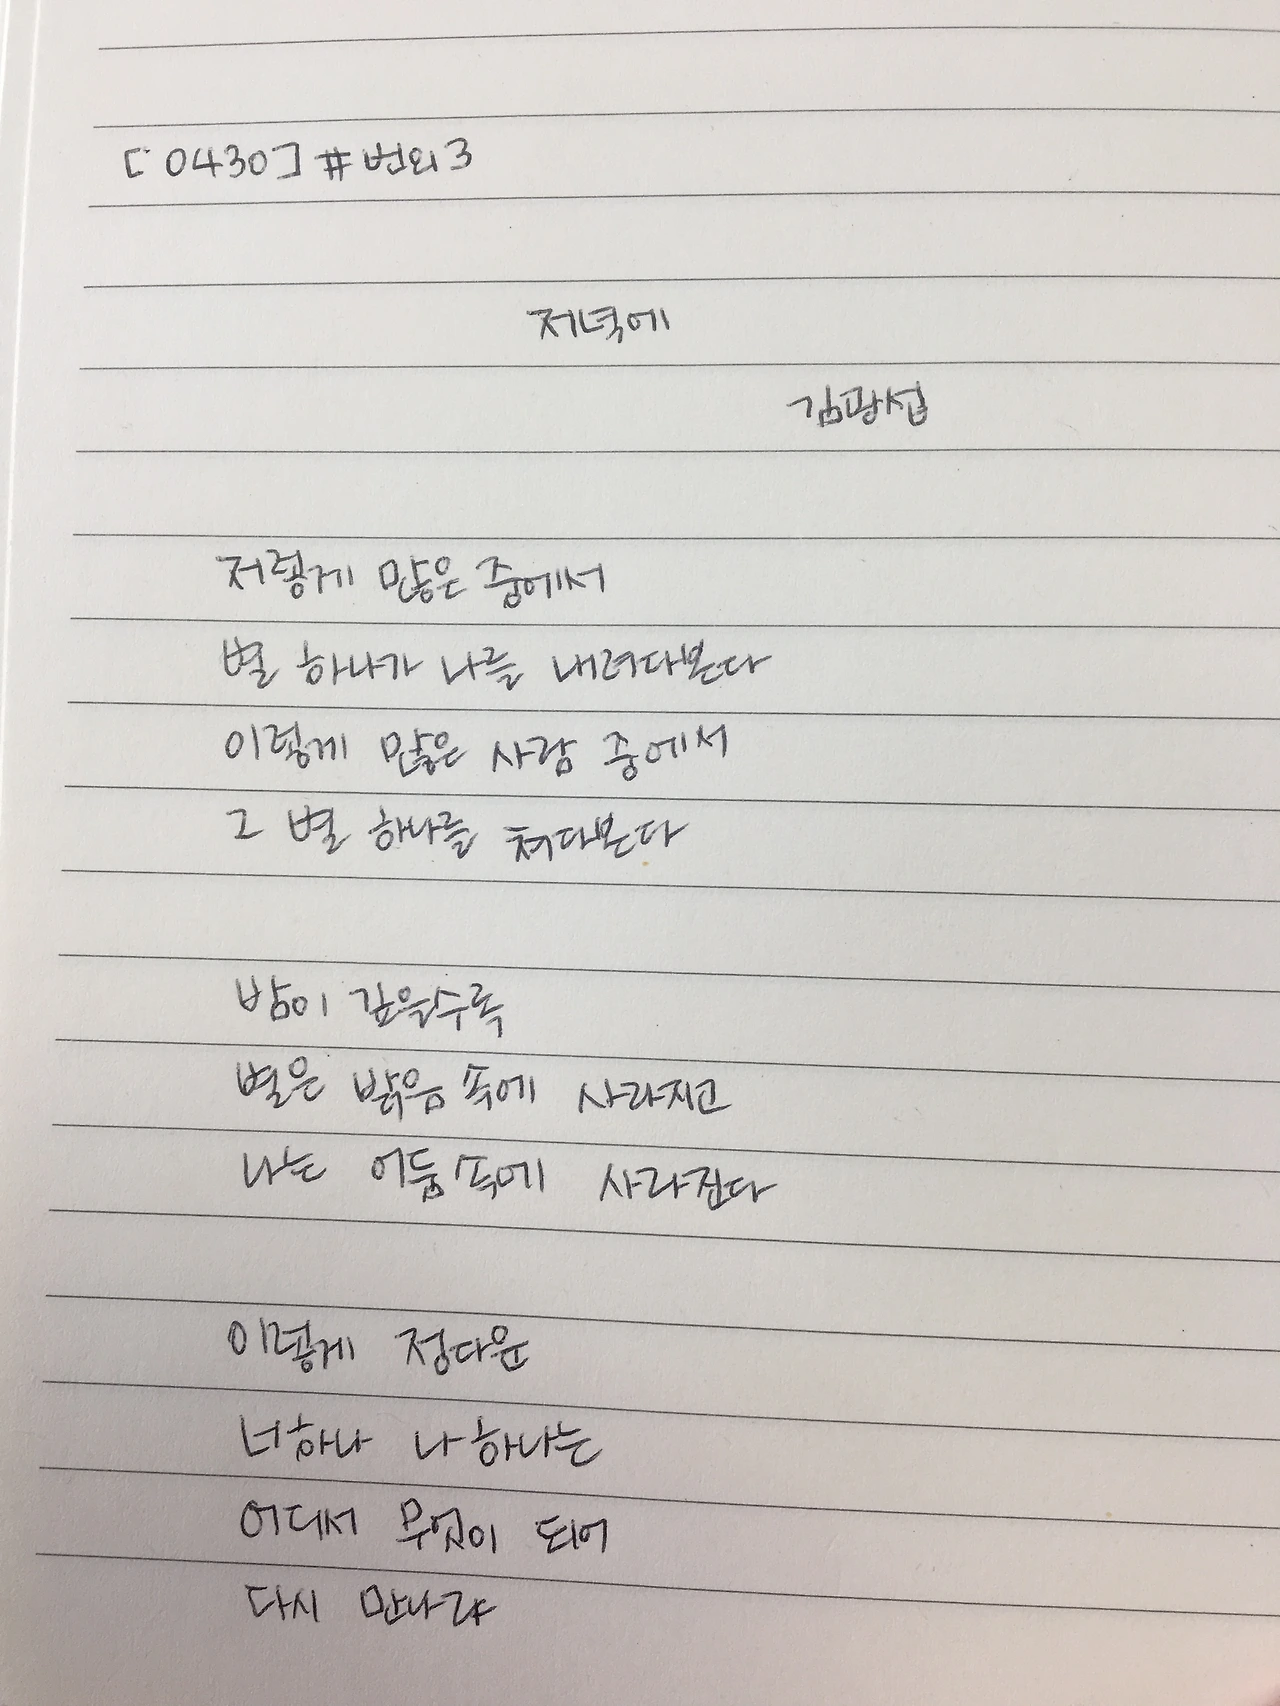 [0430] #번외3
저녁에
김광섭
저렇게 많은 중에서
별 하나가 나를 내려다본다
이렇게 많은 사람 중에서
그 별 하나를 쳐다본다
밤이 깊을수록
별은 밝음 속에 사라지고
나는 어둠 속에 사라진다
이렇게 정다운
너 하나 나 하나는
어디서 무엇이 되어
다시 만나랴